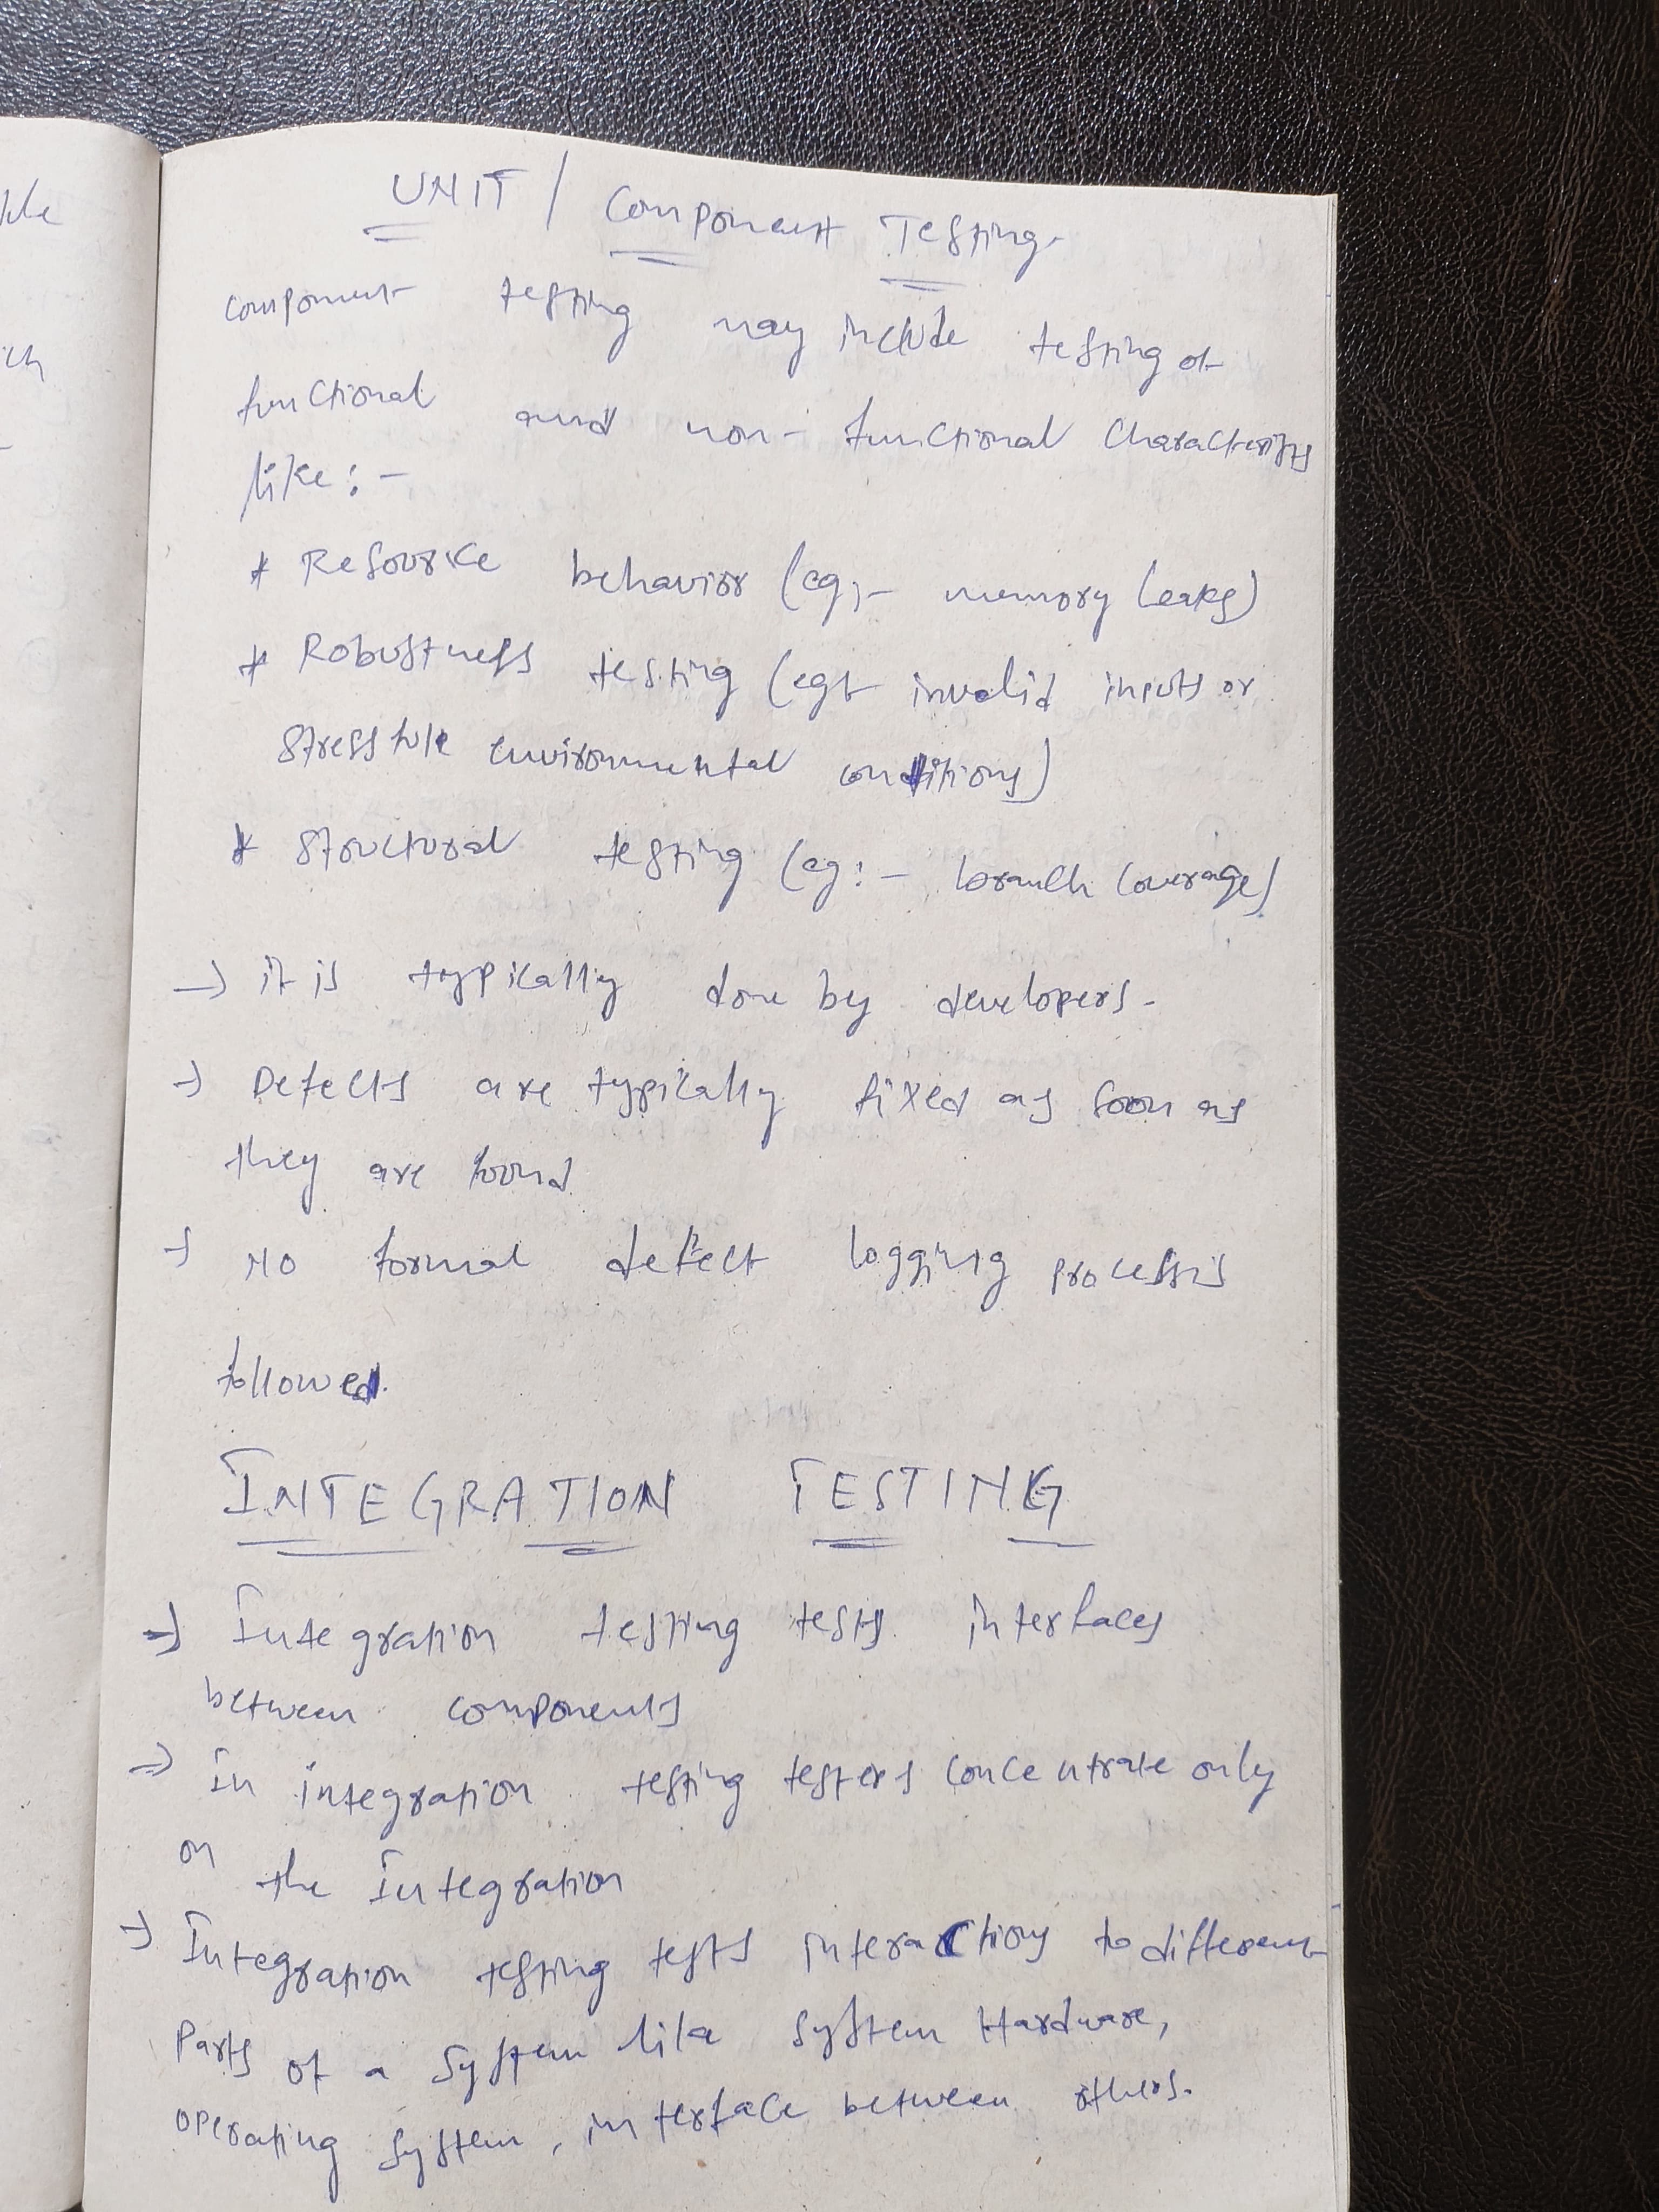 UNIT / Component Testing.
component testing may include testing of
functional and non-functional characteristics
like:-
* Resource behavior (eg:- memory leaks)
* Robustness testing (eg:- invalid inputs or
stressful environmental conditions)
* Structural testing (eg:- branch coverage)
→ it is typically done by developers.
→ Defects are typically fixed as soon as
they are found
→ No formal defect logging process is
followed.
INTEGRATION TESTING
→ Integration testing tests interfaces
between components
→ In integration testing testers concentrate only
on the Integration
→ Integration testing tests interactions to different
parts of a system like system Hardware,
operating system, interface between others.